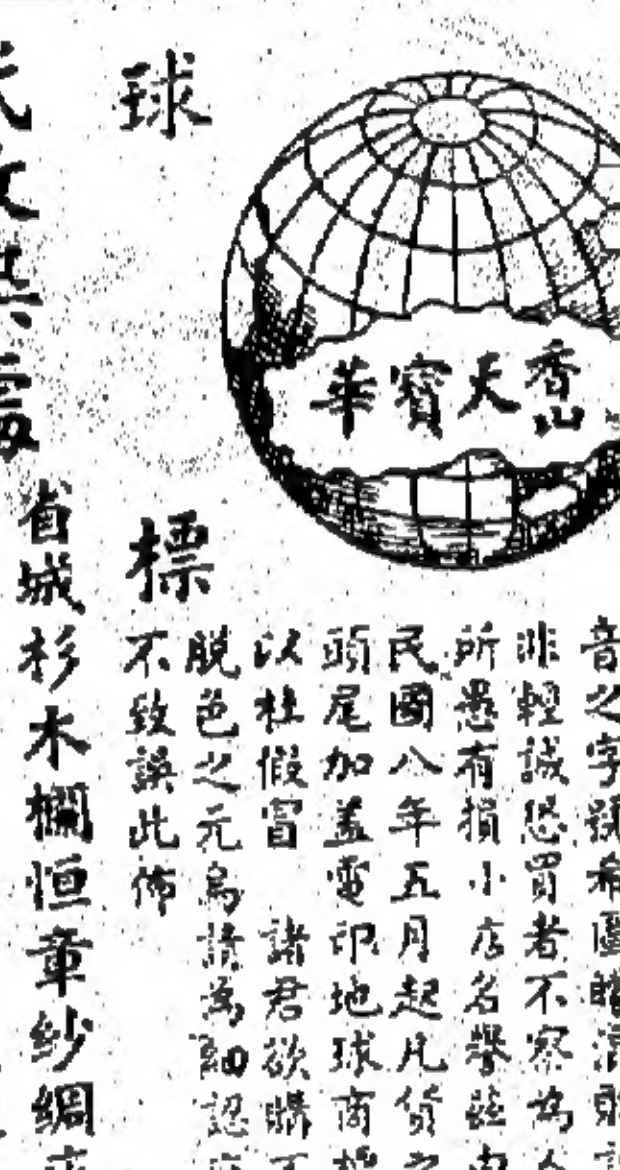 香山天寶華
球
標
音之字號希圖
非輕誠恐買者不察為
所愚有損小店名譽茲由
民國八年五月起凡貨之
頭尾加蓋電印地球商標
以杜假冒 諸君欲購不
脫色之元烏請為細認
不致誤此佈
省城杉木欄恒章紗綢